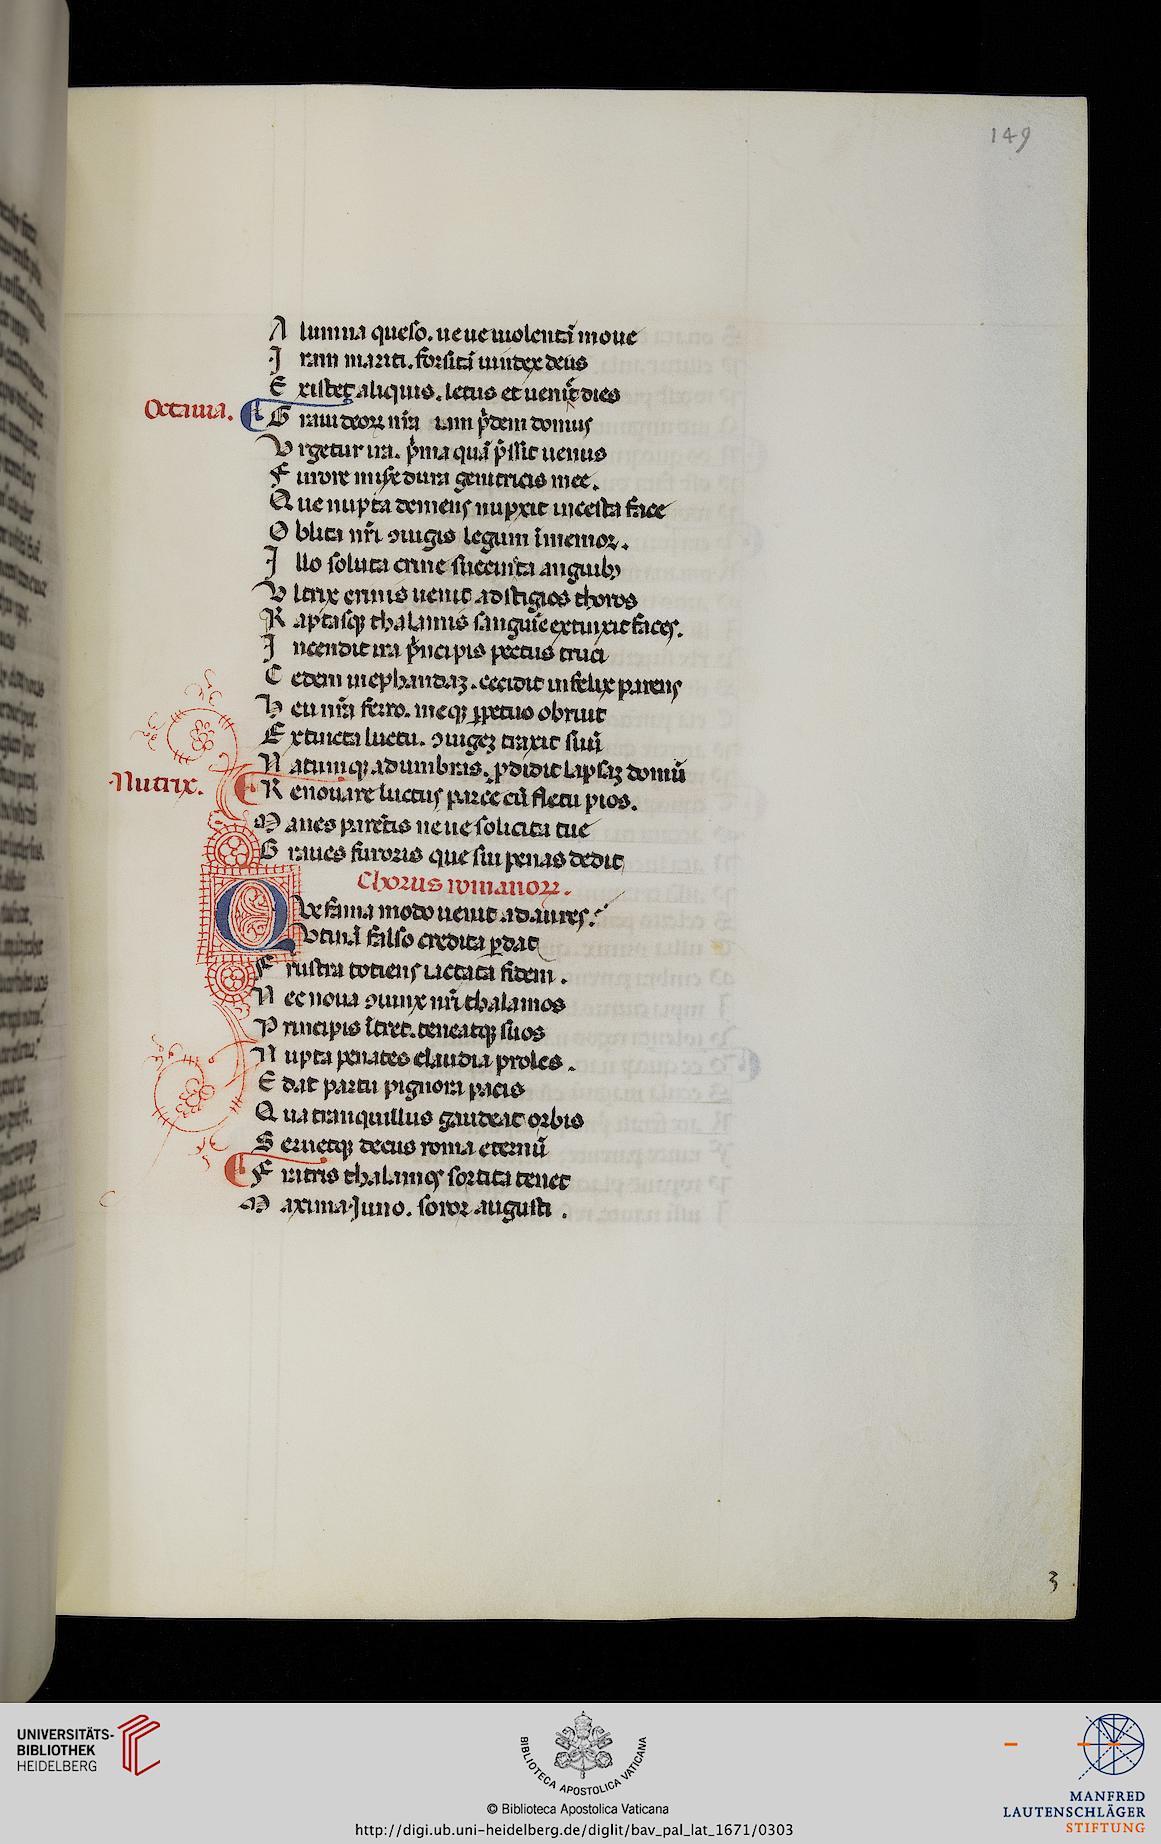 149
A lumna queso. neue uiolentā moue
I ram mariti. forsitā uindex deus
E xistet aliquis. letus et ueniet dies
Octauia.
G raui deoꝝ nr̄a iam p̄dem domus
V rgetur ira. p̄ma quā p̄ssit uenus
F urore mis̄e dura genitricis mee.
Q ue nupta demens nupxit incesta face
O blita nr̄i ꝯiugis legum īmemor.
I llo soluta crine succincta anguibꝫ
V ltrix erinis uenit ad stigios thoros
R aptasqꝫ thalamis sanguīe extinxit faces.
I ncendit ira p̄ncipis pectus truci
C edem in ephandaꝫ. cecidit infelix parens
H eu nr̄a ferro. meqꝫ ꝑpetuo obruit
E xtincta luctu. ꝯiugeꝫ traxit suū
N atumqꝫ ad umbras. ꝓdidit lapsaꝫ domū
Nutrix.
R enouare luctus parce cū fletu pios.
M anes parētis neue solicita tue
G raues furoris que sui penas dedit
Chorus romanoꝝ.
Q Ve fama modo uenit ad aures.
Vtinā falso credita ꝑdat
F rustra totiens iactata fidem.
N ec noua ꝯiunx nr̄i thalamos
P rincipis ītret. teneatqꝫ suos
N upta penates claudia proles.
E dat partu pignora pacis
Q ua tranquillus gaudeat orbis
S eruetqꝫ decus roma eternū
F ratris thalamos sortita tenet
M axima Juno. soror augusti.
3
UNIVERSITÄTS-
BIBLIOTHEK
HEIDELBERG
BIBLIOTECA APOSTOLICA VATICANA
© Biblioteca Apostolica Vaticana
http://digi.ub.uni-heidelberg.de/diglit/bav_pal_lat_1671/0303
MANFRED
LAUTENSCHLÄGER
STIFTUNG